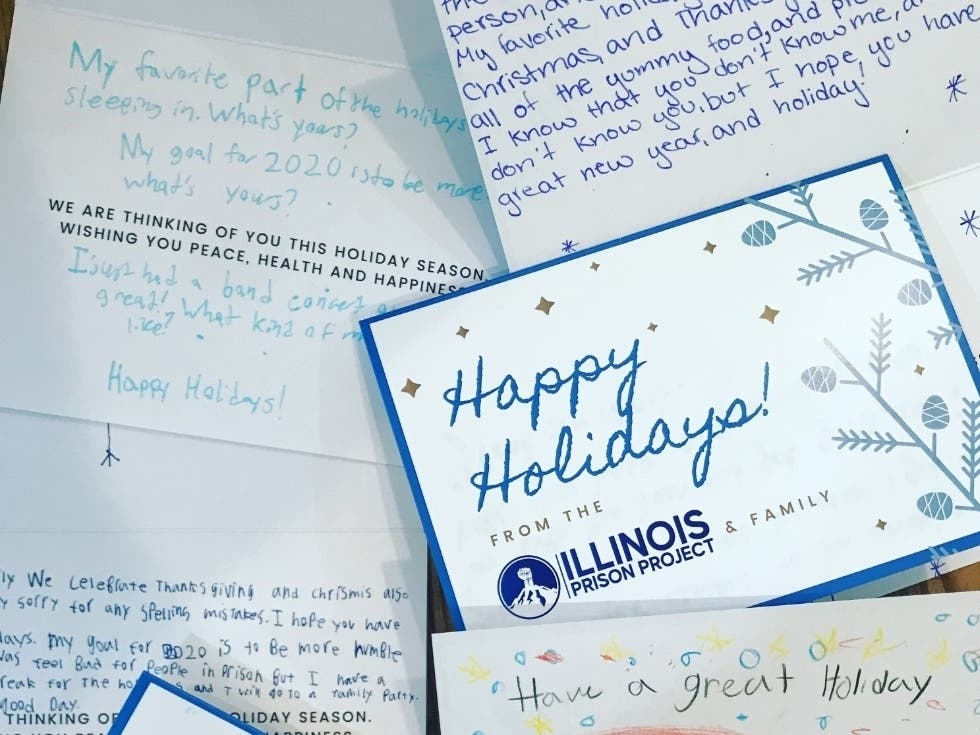 My favorite part of the holidays
sleeping in. What's yours?
My goal for 2020 is to be more
what's yours?
WE ARE THINKING OF YOU THIS HOLIDAY SEASON,
WISHING YOU PEACE, HEALTH AND HAPPINESS
I just had a band concert
great! What kind of
like?
Happy Holidays!
the
person, an
My favorite holi
Christmas, and Thanks
all of the yummy food, and pie
I know that you don't know me, a
don't know you, but I hope, you have
great new year, and holiday!
Happy
Holidays!
FROM THE
ILLINOIS
PRISON PROJECT
& FAMILY
ly We Celebrate Thanks giving and chrismis also
y sorry for any spelling mistakes. I hope you have
days. my goal for 2020 is to Be more humble
was feel Bad for People in Prison But I have a
reak for the ho s and I will go to a family Party.
Good Day.
THINKING OF OLIDAY SEASON.
HAPPINESS
Have a great Holiday